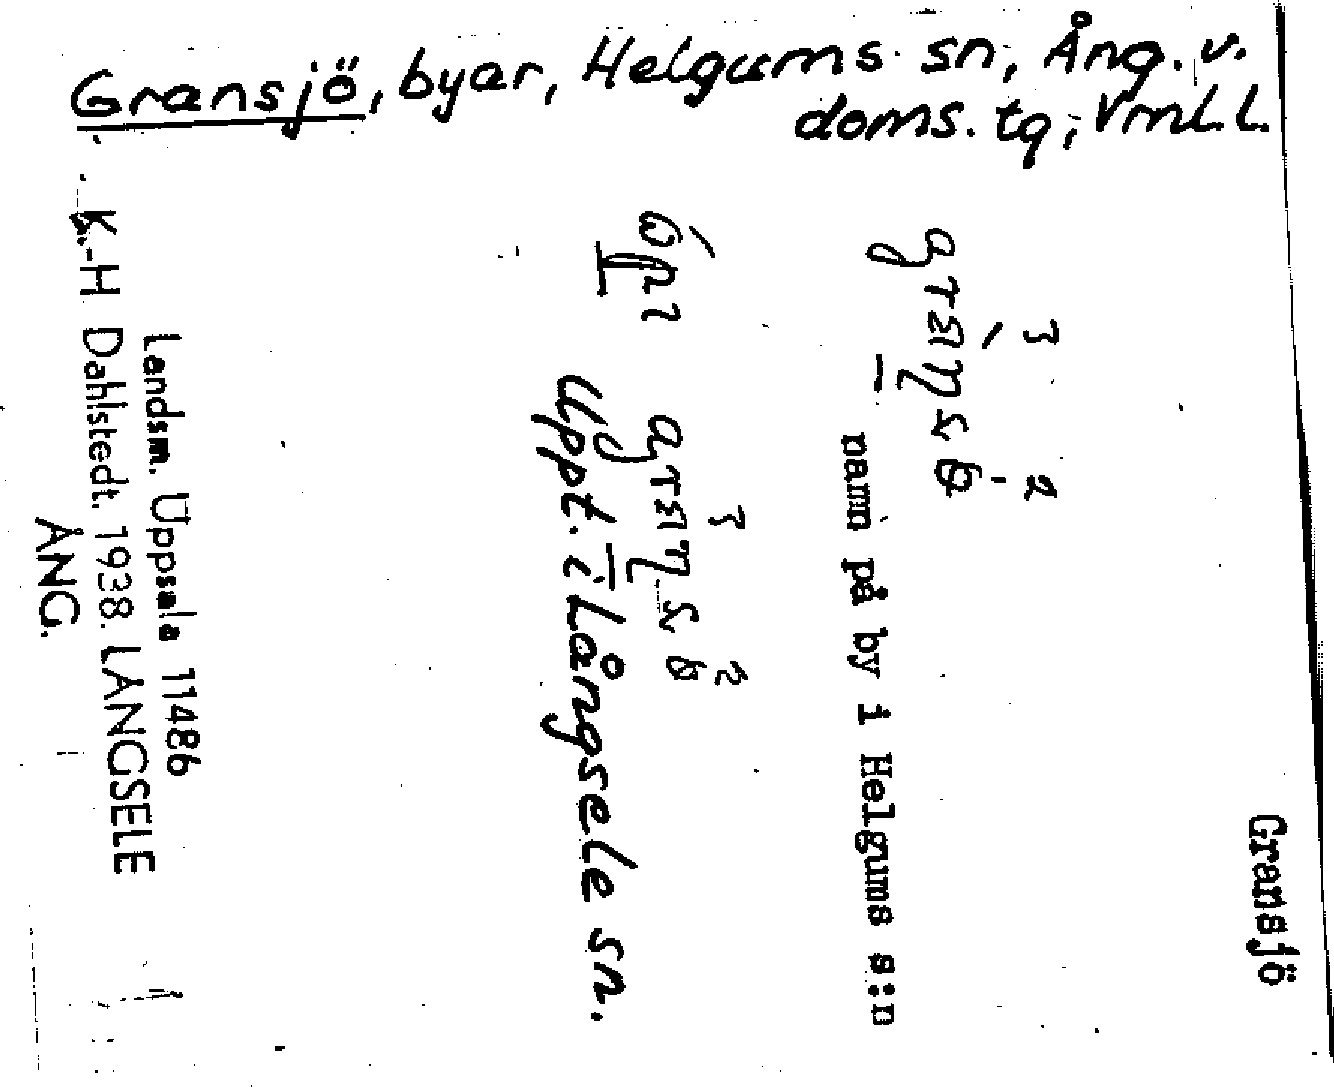 Gransjö, byar, Helgums sn, Ång. v.
doms. tg, Vml. l.
Gransjö
namn på by i Helgums s:n
Uppt. i Långsele sn.
Landsm. Uppsala 11486
K.-H Dahlstedt. 1938. LÅNGSELE
ÅNG.